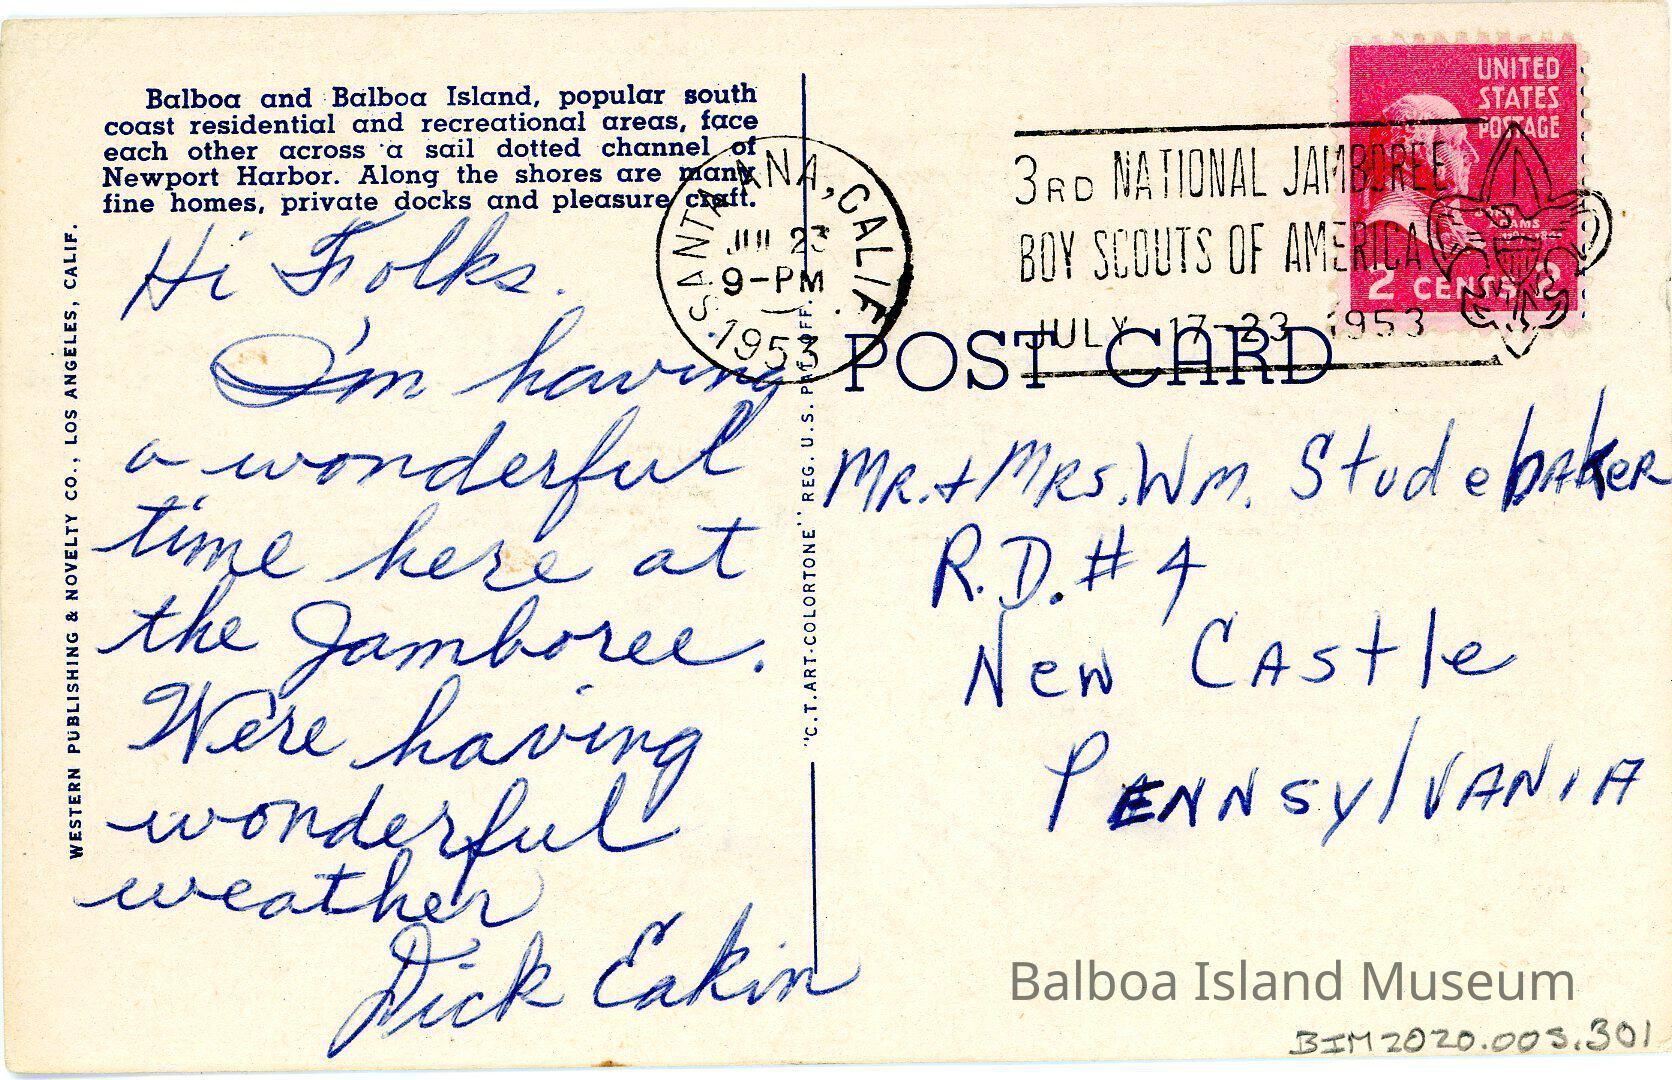 Balboa and Balboa Island, popular south
coast residential and recreational areas, face
each other across a sail dotted channel of
Newport Harbor. Along the shores are many
fine homes, private docks and pleasure craft.
WESTERN PUBLISHING & NOVELTY CO., LOS ANGELES, CALIF.
Hi Folks.
I'm having
a wonderful
time here at
the Jamboree.
We're having
wonderful
weather
Dick Eakin
"C.T. ART-COLORTONE" REG. U.S. PAT. OFF.
SANTA ANA, CALIF.
JUL 23
9-PM
1953
3RD NATIONAL JAMBOREE
BOY SCOUTS OF AMERICA
JULY 17-23 1953
UNITED
STATES
POSTAGE
2 CENTS 2
POST CARD
Mr. + Mrs. Wm. Studebaker
R.D. # 4
New Castle
Pennsylvania
Balboa Island Museum
BIM2020.005.301